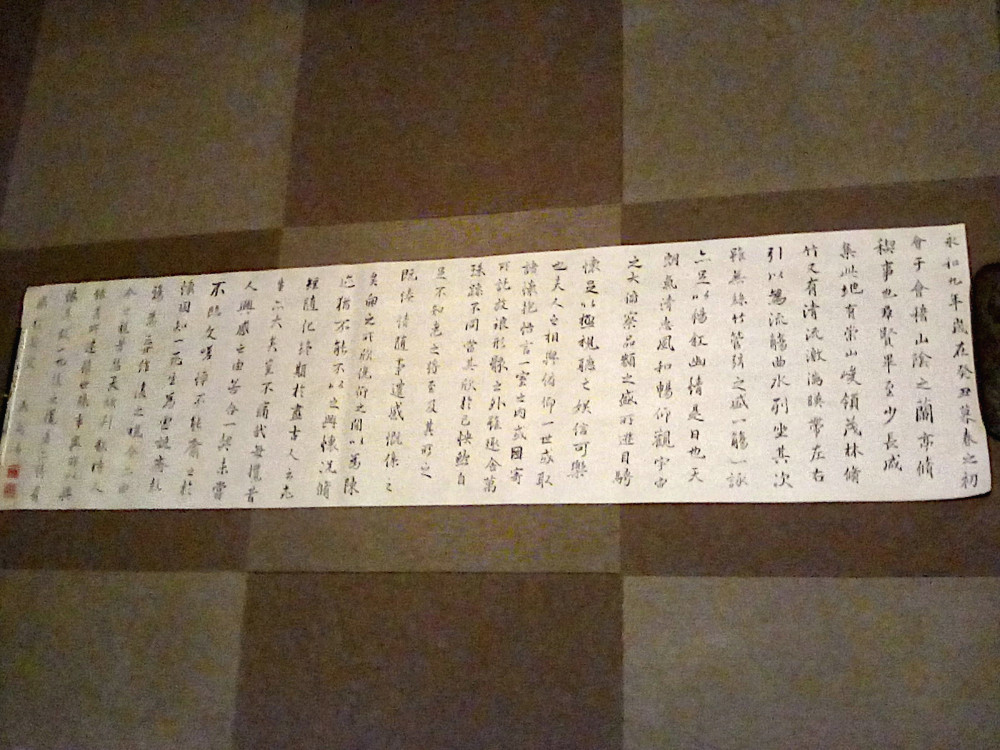 永和九年歲在癸丑暮春之初
會于會稽山陰之蘭亭脩
稧事也群賢畢至少長咸
集此地有崇山峻領茂林脩
竹又有清流激湍暎帶左右
引以為流觴曲水列坐其次
雖無絲竹管弦之盛一觴一詠
亦足以暢叙幽情是日也天
朗氣清惠風和暢仰觀宇宙
之大俯察品類之盛所遊目騁
懷足以極視聽之娛信可樂
也夫人之相與俯仰一世或取
諸懷抱悟言一室之內或因寄
所託放浪形骸之外雖趣舍萬
殊靜躁不同當其欣於已快然自
足不知老之將至及其所之
既惓情隨事遷感慨係之
矣向之所欣俛仰之間以為陳
迹猶不能不以之興懷況脩
短隨化終期於盡古人云死
生亦大矣豈不痛哉每攬昔
人興感之由若合一契未嘗
不臨文嗟悼不能喻之於
懷固知一死生為虛誕齊彭
殤為妄作後之視今亦由
今之視昔悲夫故列敘時人
錄其所述雖世殊事異所以興
懷其致一也後之